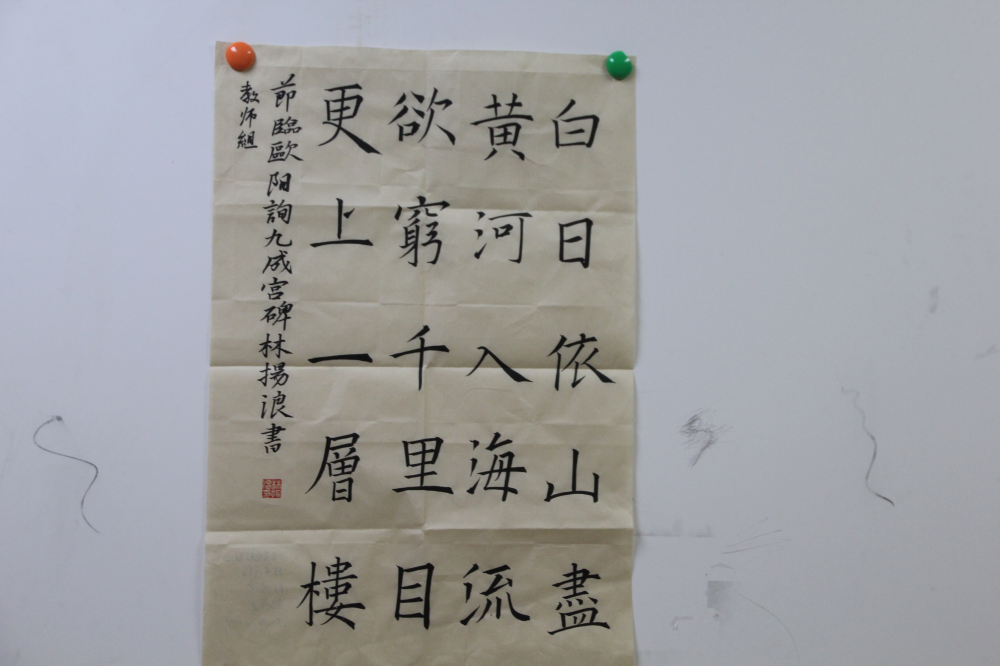 白日依山盡
黄河入海流
欲窮千里目
更上一層樓
節臨歐阳詢九成宫碑林揚浪書
教师組